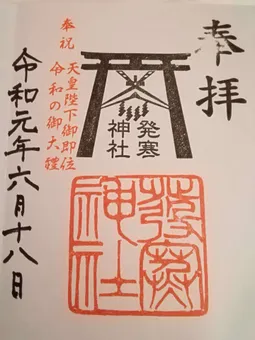 奉拝
発寒
神社
発寒神社
奉祝 天皇陛下御即位
令和の御大禮
令和元年六月十八日